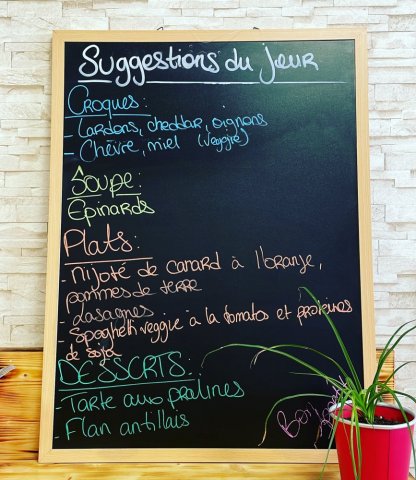 Suggestions du jour
Croques:
- Lardons, cheddar, oignons
- Chèvre, miel (veggie)
Soupe:
Epinards
Plats:
- Mijoté de canard à l'orange,
pommes de terre
- Lasagnes
- Spaghetti veggie à la tomates et protéines
de soja
DESSERTS:
- Tarte aux pralines
- Flan antillais